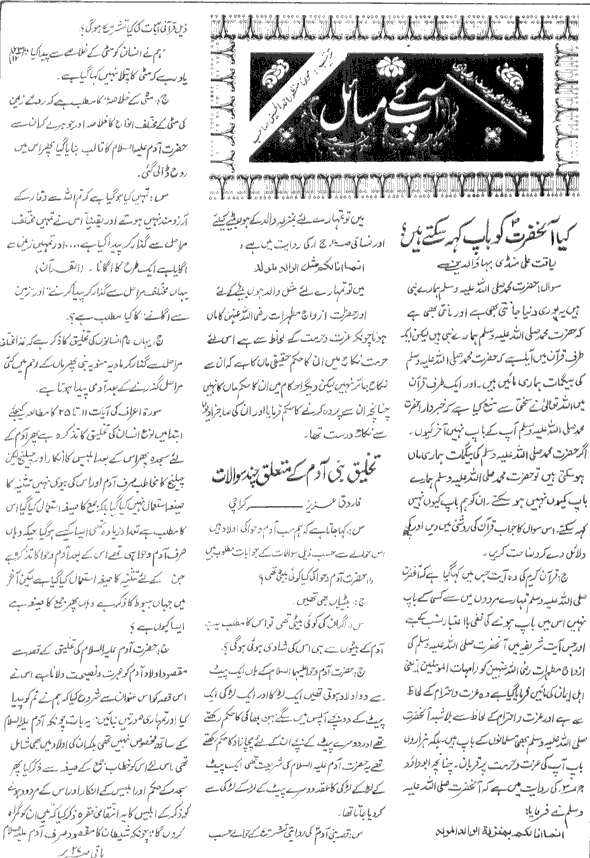 آپ کے مسائل
کیا آنحضرتؐ کو باپ کہہ سکتے ہیں؟
لیاقت علی منڈی بہاؤالدین
سوال: حضرت محمد صلی اللہ علیہ وسلم ہمارے نبی
ہیں یہ پوری دنیا جانتی بھی ہے اور مانتی بھی ہے
کہ حضرت محمد صلی اللہ علیہ وسلم ہمارے نبی ہیں لیکن ایک
طرف قرآن میں آیا ہے کہ حضرت محمد صلی اللہ علیہ وسلم
کی بیگمات ہماری مائیں ہیں۔ اور ایک طرف قرآن
میں اللہ تعالیٰ نے سختی سے منع کیا ہے کہ خبردار حضرت
محمد صلی اللہ علیہ وسلم آپ کے باپ نہیں آخر کیوں۔
اگر حضرت محمد صلی اللہ علیہ وسلم کی بیگمات ہماری ماں
ہو سکتی ہیں تو حضرت محمد صلی اللہ علیہ وسلم ہمارے
باپ کیوں نہیں ہو سکتے، ان کو ہم باپ کیوں نہیں
کہہ سکتے۔ اس سوال کا جواب قرآن کی روشنی میں دیں اور
دلائل دے کر وضاحت کریں۔
ج: قرآن کریم کی وہ آیت جس میں کہا گیا ہے کہ آنحضرت
صلی اللہ علیہ وسلم تمہارے مردوں میں سے کسی کے باپ
نہیں اس میں باپ ہونے کی نفی باعتبار نسب کے ہے
اور جس آیت شریفہ میں آنحضرت صلی اللہ علیہ وسلم کی
ازواج مطہرات رضی اللہ عنہن کو امہات المومنین یعنی
اہل ایمان کی مائیں فرمایا گیا ہے وہ عزت و احترام کے لحاظ
سے ہے اور عزت و احترام کے لحاظ سے بلاشبہ آنحضرت
صلی اللہ علیہ وسلم بھی مسلمانوں کے باپ ہیں بلکہ ہزاروں
باپ آپ کی عزت و حرمت پر قربان۔ چنانچہ ابوداؤد
کی روایت میں ہے کہ آنحضرت صلی اللہ علیہ
وسلم نے فرمایا:
انما انا لکم بمنزلة الوالد
میں تو تمہارے لئے بمنزلہ والد کے ہوں بیٹے کیلئے
اور نسائی کی روایت میں ہے:
انما انا لکم مثل الوالد لولدہ
میں تو تمہارے لئے مثل والد ہوں بیٹے کے لئے
اور حضرات ازواج مطہرات رضی اللہ عنہن کا ماں
ہونا چونکہ عزت و حرمت کے لحاظ سے ہے اس لئے
حرمت نکاح میں ان کا حکم حقیقی ماں کا ہے کہ ان سے
نکاح جائز نہیں لیکن دیگر احکام میں ان کا حکم ماں کا نہیں
چنانچہ ان سے پردہ کرنے کا حکم فرمایا اور ان کی صاحبزادیوں
سے نکاح درست تھا۔
تخلیق بنی آدم کے متعلق چند سوالات
فاروق عزیز کراچی
س: کہا جاتا ہے کہ ہم سب آدم و حوا کی اولاد ہیں
اس حوالے سے حسب ذیل سوالات کے جوابات مطلوب ہیں
حضرت آدم و حوا کی کیا کوئی بیٹی تھی؟
ج: بیٹیاں بھی تھیں۔
س: اگر ان کی کوئی بیٹی تھی تو اس کا مطلب یہ ہے
آدم کے بیٹوں سے ہی اس کی شادی ہوئی ہوگی؟
ج: حضرت آدم و حوا علیہما السلام کے ہاں ایک پیٹ
سے دو اولاد ہوتی تھیں ایک لڑکا اور ایک لڑکی ایک
پیٹ کے دو بچے آپس میں سگے بہن بھائی کا حکم رکھتے
تھے اور دوسرے پیٹ کے بچے ان کے لئے چچا زاد کا حکم رکھتے
تھے یہ حضرت آدم علیہ السلام کی شریعت تھی ایک پیٹ
کے لڑکے لڑکی کا عقد دوسرے پیٹ کے لڑکے لڑکی سے
کر دیا جاتا تھا۔
س: قصہ بنی آدم کی روایتی تشریح کے حوالے سے حسب
ذیل قرآنی آیات کی کیا تشریح ہوگی؟
"ہم نے انسان کو مٹی کے خلاصے سے پیدا کیا"
یاد رہے کہ مٹی کا پتلا نہیں کہا گیا ہے۔
ج: مٹی کے خلاصہ کا مطلب ہے کہ روئے زمین
کی مٹی کے مختلف انواع کا خلاصہ اور جوہر لے کر ان سے
حضرت آدم علیہ السلام کا قالب بنایا گیا پھر اس میں
روح ڈالی گئی۔
س: تمہیں کیا ہو گیا ہے کہ تم اللہ سے وقار کے
آرزو مند نہیں ہوتے اور یقیناً اس نے تمہیں مختلف
مراحل سے گذار کر پیدا کیا ہے.... اور تمہیں زمین سے
اگایا ہے ایک طرح کا اگانا۔ (القرآن)
یہاں مختلف مراحل سے گذار کر پیدا کرنے" اور "زمین
سے اگانے" کا کیا مطلب ہے؟
ج: یہاں عام انسانوں کی تخلیق کا ذکر ہے کہ غذا مختلف
مراحل سے گذار کر مادہ منویہ بنی پھر ماں کے رحم میں کئی
مراحل گذرنے کے بعد آدمی پیدا ہوتا ہے۔
سورة اعراف کی آیات ۱۱ تا ۲۵ کا مطالعہ کیجئے
ابتدا میں نوع انسان کی تخلیق کا تذکرہ ہے پھر آدم کے
لئے سجدہ پھر اس کے بعد ابلیس کا انکار اور چیلنج لیکن
چیلنج کا مخاطب صرف آدم اور اس کی بیوی نہیں تثنیہ کا
صیغہ استعمال نہیں کیا گیا بلکہ جمع کا صیغہ استعمال کیا گیا جس
کا مطلب ہے تعداد زیادہ تھی ایسا کیسے ہو گیا جبکہ وہاں
صرف آدم و حوا ہی تھے اس کے بعد آدم و حوا کا تذکرہ ہے
جن کے لئے تثنیہ کا صیغہ استعمال کیا گیا ہے لیکن آخر
میں جہاں ہبوط کا ذکر ہے وہاں پھر جمع کا صیغہ ہے
ایسا کیوں ہے؟
ج: حضرت آدم علیہ السلام کی تخلیق کے قصہ سے
مقصود اولاد آدم کو عبرت و نصیحت دلانا ہے اس لئے
اس قصہ کو اس عنوان سے شروع کیا کہ ہم نے تم کو پیدا
کیا اور تمہاری صورتیں بنائیں، یہ بات چونکہ آدم علیہ السلام
کے ساتھ مخصوص نہیں تھی بلکہ ان کی اولاد میں بھی شامل
تھی، اس لئے اس کو خطاب جمع کے صیغہ سے ذکر کیا پھر
سجدہ کے حکم اور ابلیس کے انکار اور اس کے مردود ہونے
کو ذکر کر کے ابلیس کا یہ انتقامی فقرہ ذکر کیا کہ میں ان کو گمراہ
کروں گا، چونکہ شیطان کا مقصود صرف آدم علیہ السلام
باقی صفحہ ۲۷ پر